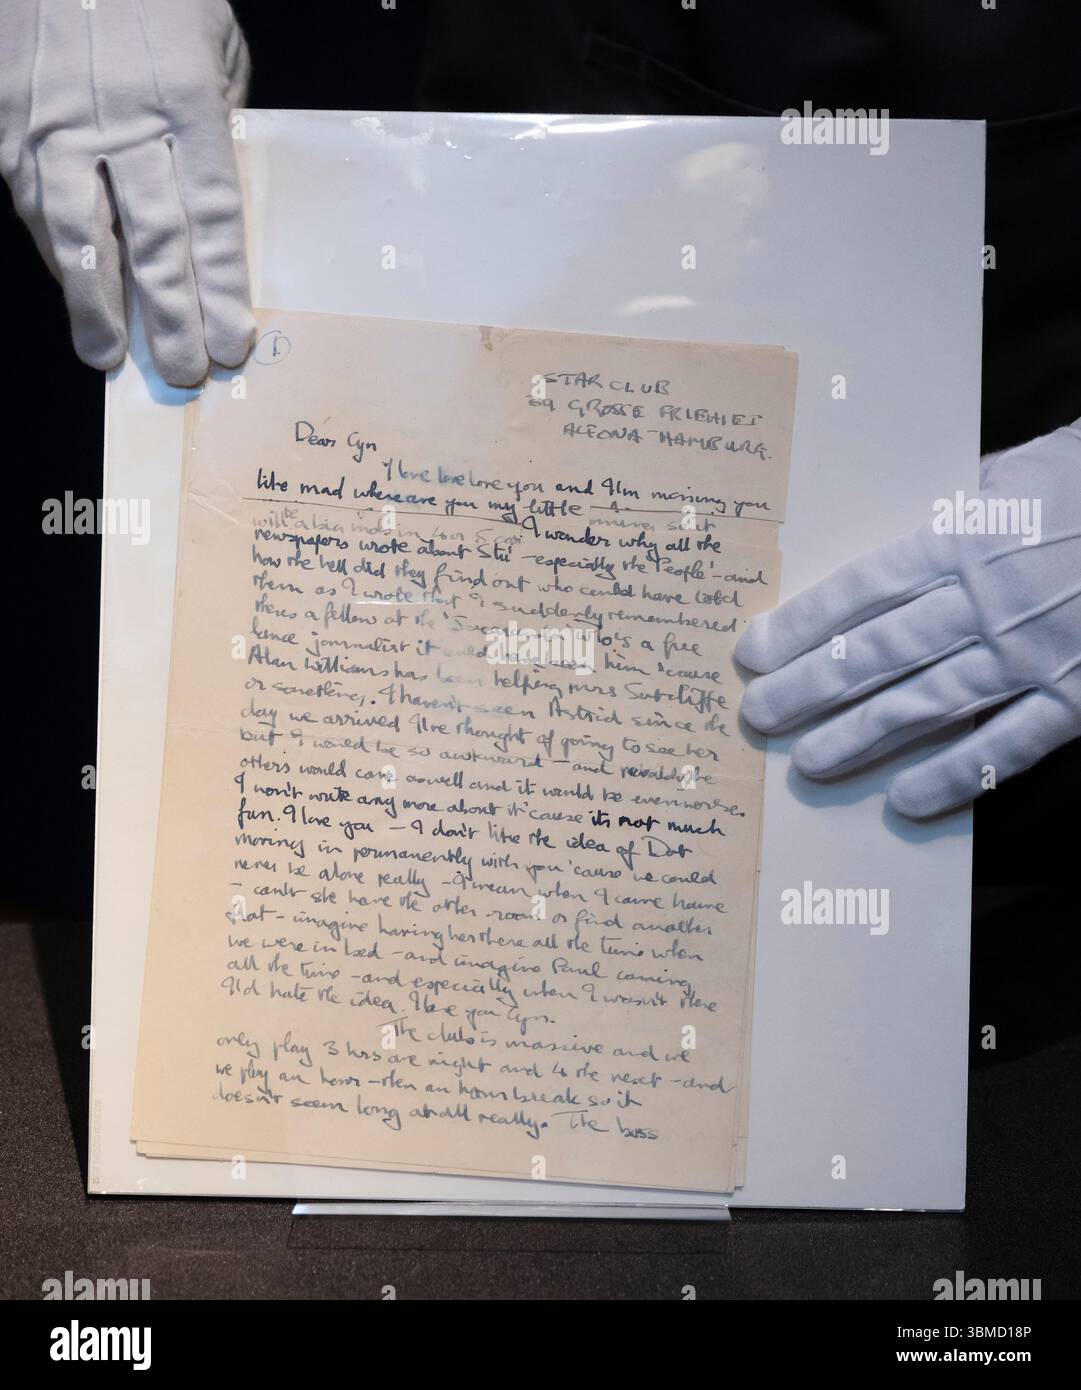 1
STAR CLUB
39 GROSSE FRIEHIET
ALTONA HAMBURG.
Dear Cyn
I love love love you and I'm missing you
like mad where are you my little
I wonder why all the
newspapers wrote about Stu - especially the 'People' - and
how the hell did they find out who could have told
them as I wrote that I suddenly remembered
theres a fellow at the 'Jacaranda' who's a free
lance journalist it could have been him 'cause
Alan Williams has been helping mrs Sutcliffe
or something. I haven't seen Astrid since the
day we arrived I've thought of going to see her
but I would be so awkward - and probably the
others would come as well and it would be even worse.
I won't write any more about it 'cause its not much
fun. I love you - I don't like the idea of Dot
moving in permanently with you 'cause we could
never be alone really - I mean when I come home
- can't she have the other room or find another
flat - imagine having her there all the time when
we were in bed - and imagine Paul coming
all the time - and especially when I wasn't there
I'd hate the idea. I love you Cyn.
The club is massive and we
only play 3 hrs one night and 4 the next - and
we play an hour - then an hours break so it
doesn't seem long at all really. The boss
alamy
alamy
Image ID: 3BMD18P
www.alamy.com